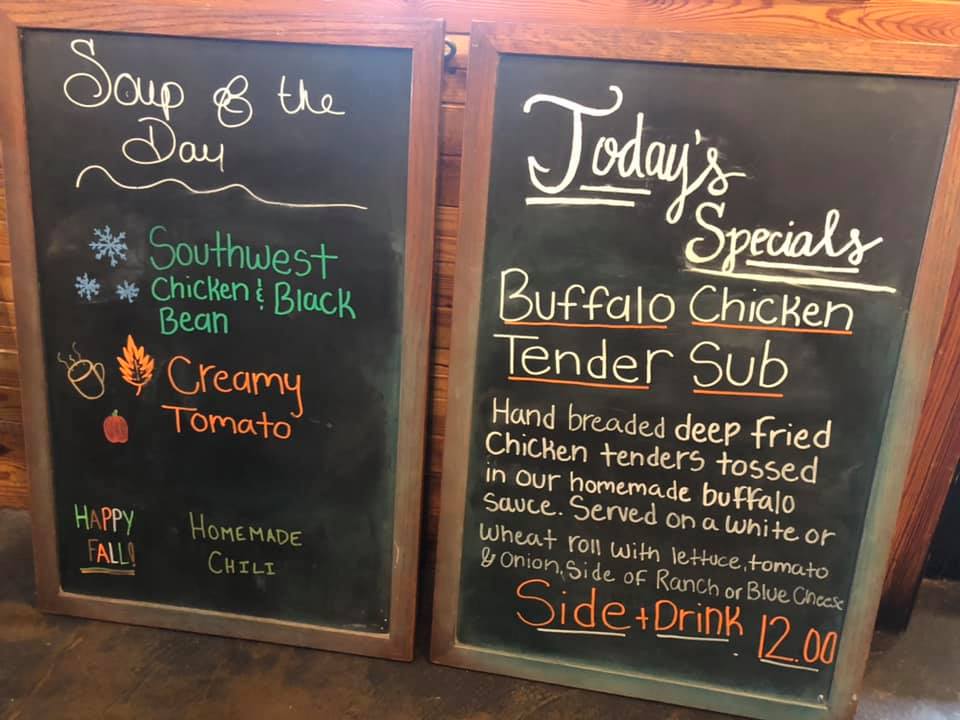 Soup of the
Day
Southwest
Chicken & Black
Bean
Creamy
Tomato
HAPPY
FALL!
HOMEMADE
CHILI
Today's
Specials
Buffalo Chicken
Tender Sub
Hand breaded deep fried
Chicken tenders tossed
in our homemade buffalo
sauce. Served on a white or
wheat roll with lettuce, tomato
& Onion, Side of Ranch or Blue Cheese
Side + Drink 12.00